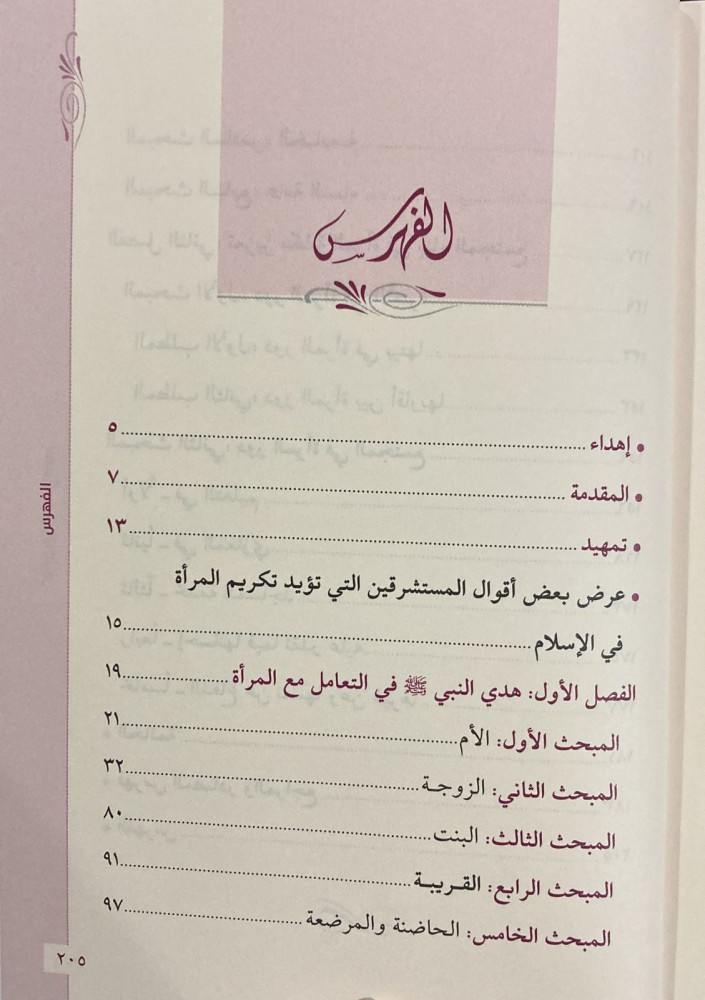 الفهرس
• إهداء ........ ٥
• المقدمة ........ ٧
• تمهيد ........ ١٣
• عرض بعض أقوال المستشرقين التي تؤيد تكريم المرأة
في الإسلام ........ ١٥
الفصل الأول: هدي النبي ﷺ في التعامل مع المرأة ........ ١٩
المبحث الأول: الأم ........ ٢١
المبحث الثاني: الزوجـة ........ ٣٢
المبحث الثالث: البنت ........ ٨٠
المبحث الرابع: القـريبـة ........ ٩١
المبحث الخامس: الحاضنة والمرضعة ........ ٩٧
الفهرس
٢٠٥